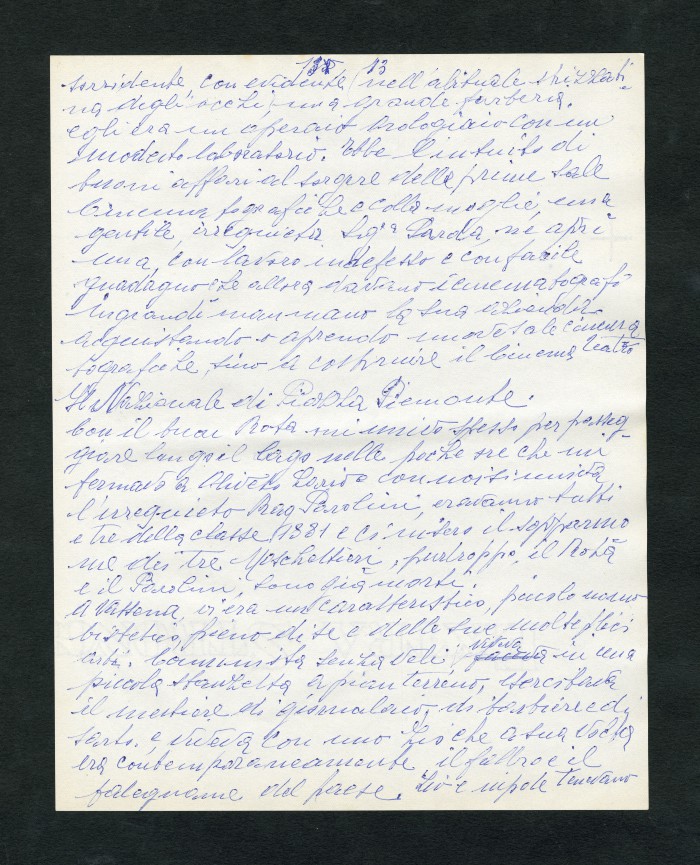 13
sorridente, con evidente (nell'abituale strizzati-
na degli occhi) una grande furberia.
Egli era un operaio orologiaio con un
modesto laboratorio. Ebbe l'intuito di
buoni affari al sorgere delle prime sale
cinematografiche e colla moglie, una
gentile, irrequieta Sig.ra Garda, ne aprì
una, con lavoro indefesso e con facile
guadagno che allora davano i cinematografi
ingrandì man mano la sua azienda
acquistando o aprendo nuove sale cinema
tografiche, sino a costruire il Cinema Teatro
Il Nazionale di Piazza Piemonte.
Con il buon Rota mi univo spesso per passeg-
giare lungo il lago nelle poche ore che mi
fermavo a Oliveto Lario con noi si univa
l'irrequieto Rag. Parolini, eravamo tutti
e tre della classe 1881 e ci misero il sopranno
me dei tre Moschettieri, purtroppo, il Rota
e il Parolini, sono già morti.
A Vassena vi era un caratteristico, piccolo uomo
bisbetico, pieno di se e delle sue molteplici
arti. Comunista senza veli viveva in una
piccola stanzetta a pian terreno, esercitava
il mestiere di giornalaio, di barbiere e di
sarto. e viveva con uno zio che a sua volta
era contemporaneamente il fabbro e il
falegname del paese. Zio e nipote tenevano